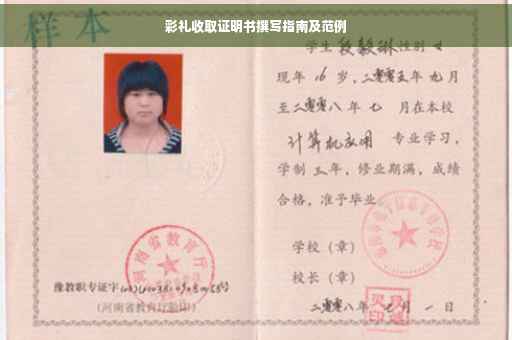 彩礼收取证明书撰写指南及范例
样本
学生段毅琳性别女
现年16岁,二零零五年九月
至二零零八年七月在本校
计算机应用 专业学习,
学制三年,修业期满,成绩
合格,准予毕业。
学校(章)
校长(章)
二零零八年七月一日
河南省教育厅
豫教职专证字
(河南省教育厅验印)